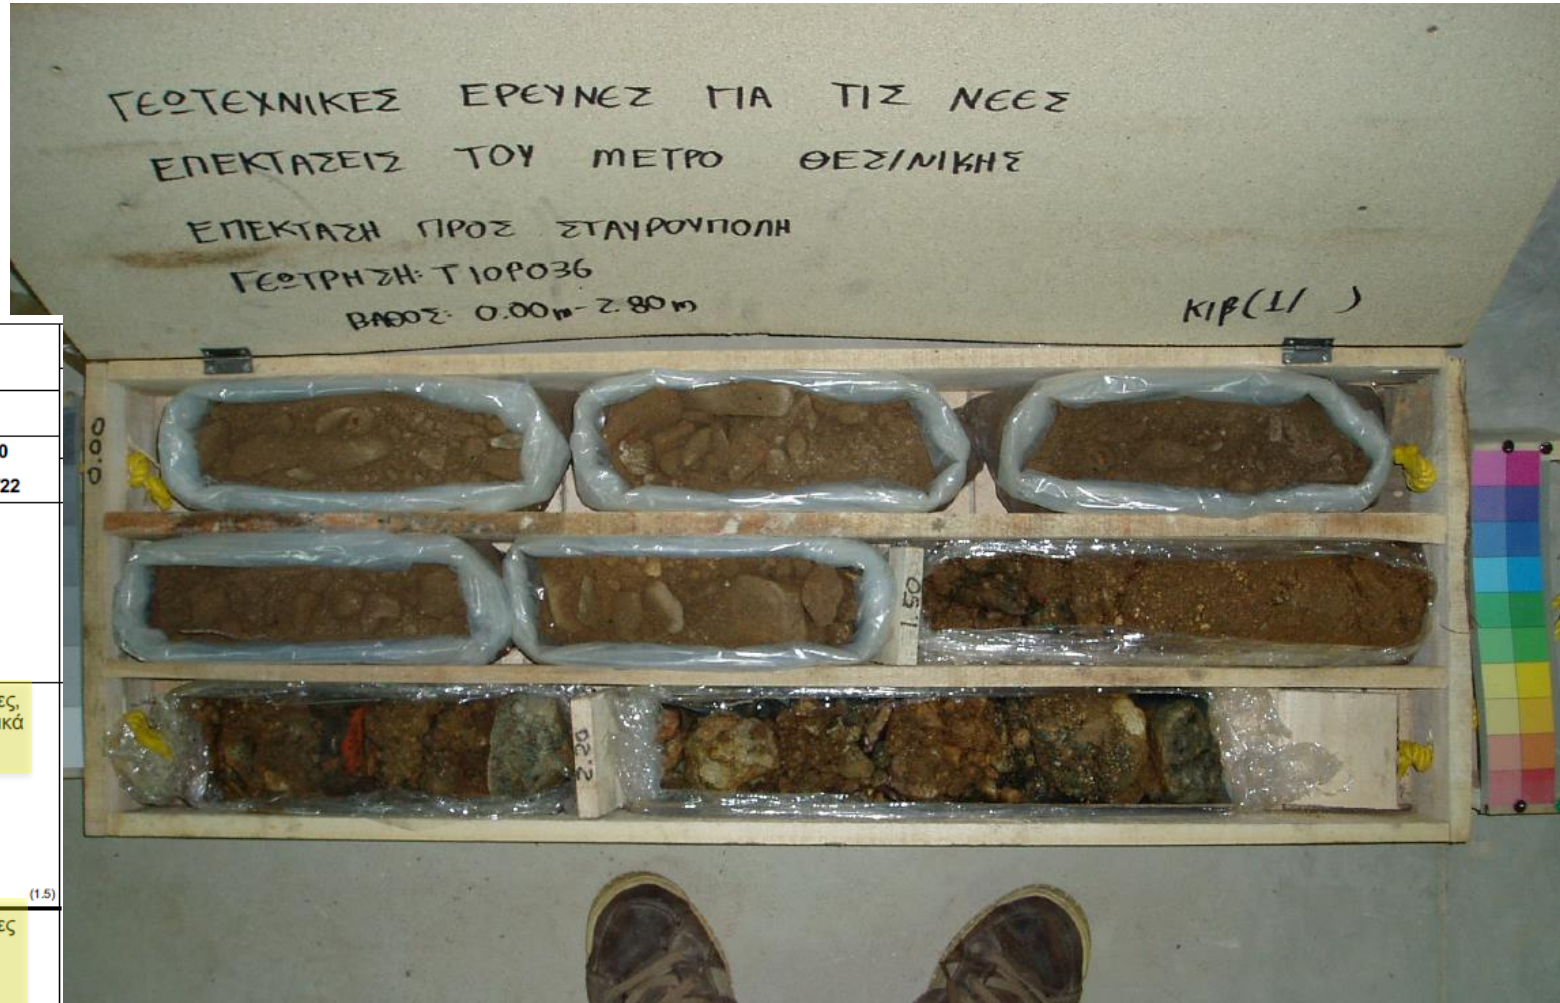 ΓΕΩΤΕΧΝΙΚΕΣ ΕΡΕΥΝΕΣ ΓΙΑ ΤΙΣ ΝΕΕΣ
ΕΠΕΚΤΑΣΕΙΣ ΤΟΥ ΜΕΤΡΟ ΘΕΣ/ΝΙΚΗΣ
ΕΠΕΚΤΑΣΗ ΠΡΟΣ ΣΤΑΥΡΟΥΠΟΛΗ
ΓΕΩΤΡΗΣΗ: Τ10Ρ036
ΒΑΘΟΣ: 0.00m-2.80m
ΚΙΒ(1/ )
0.00
1.50
2.20
0
22
ες,
κά
(1.5)
ες